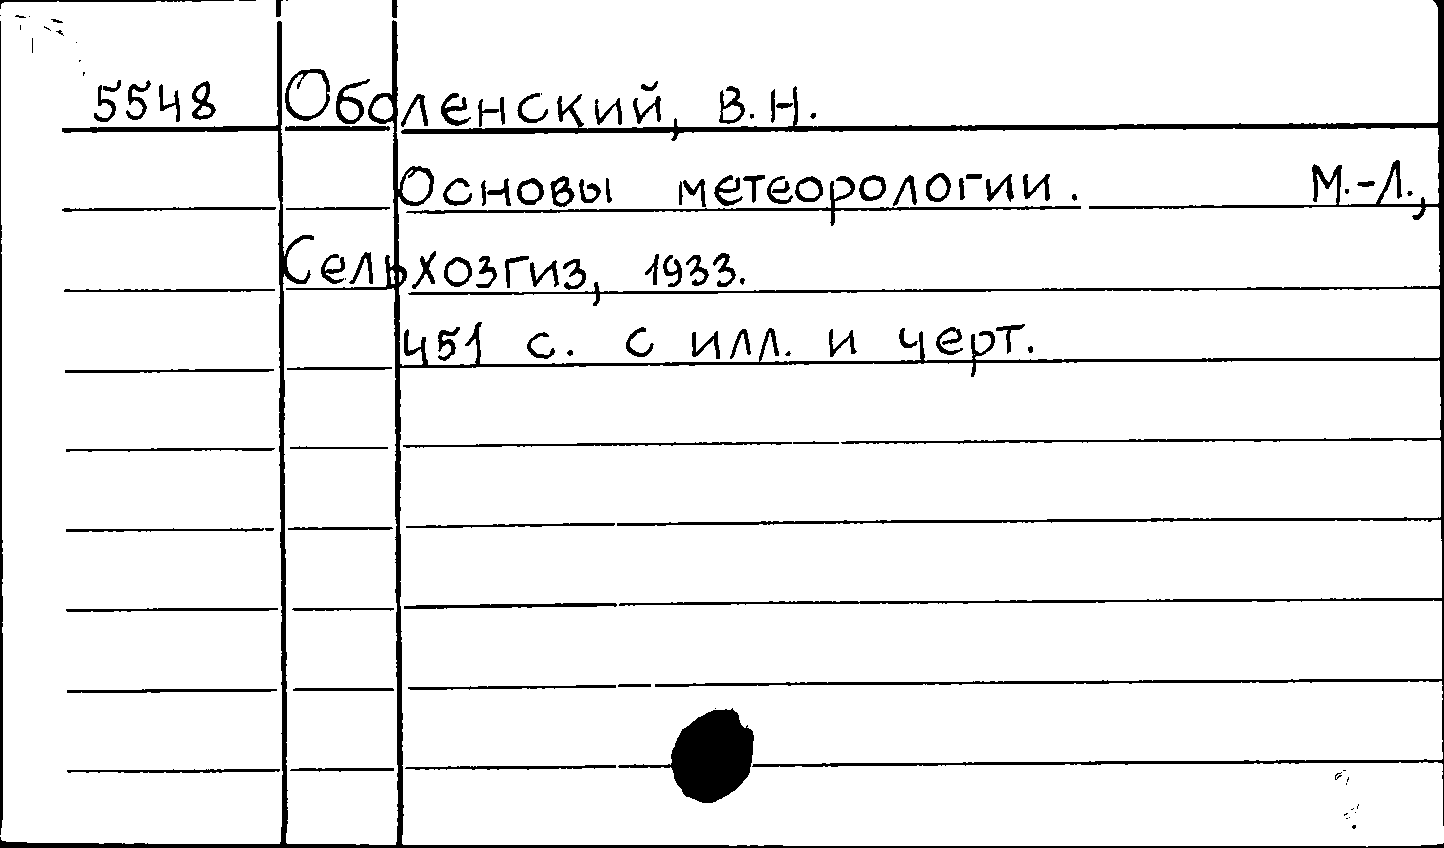 5548 Оболенский, В.Н.
Основы метеорологии. М.-Л.,
Сельхозгиз, 1933.
451 с. с илл. и черт.